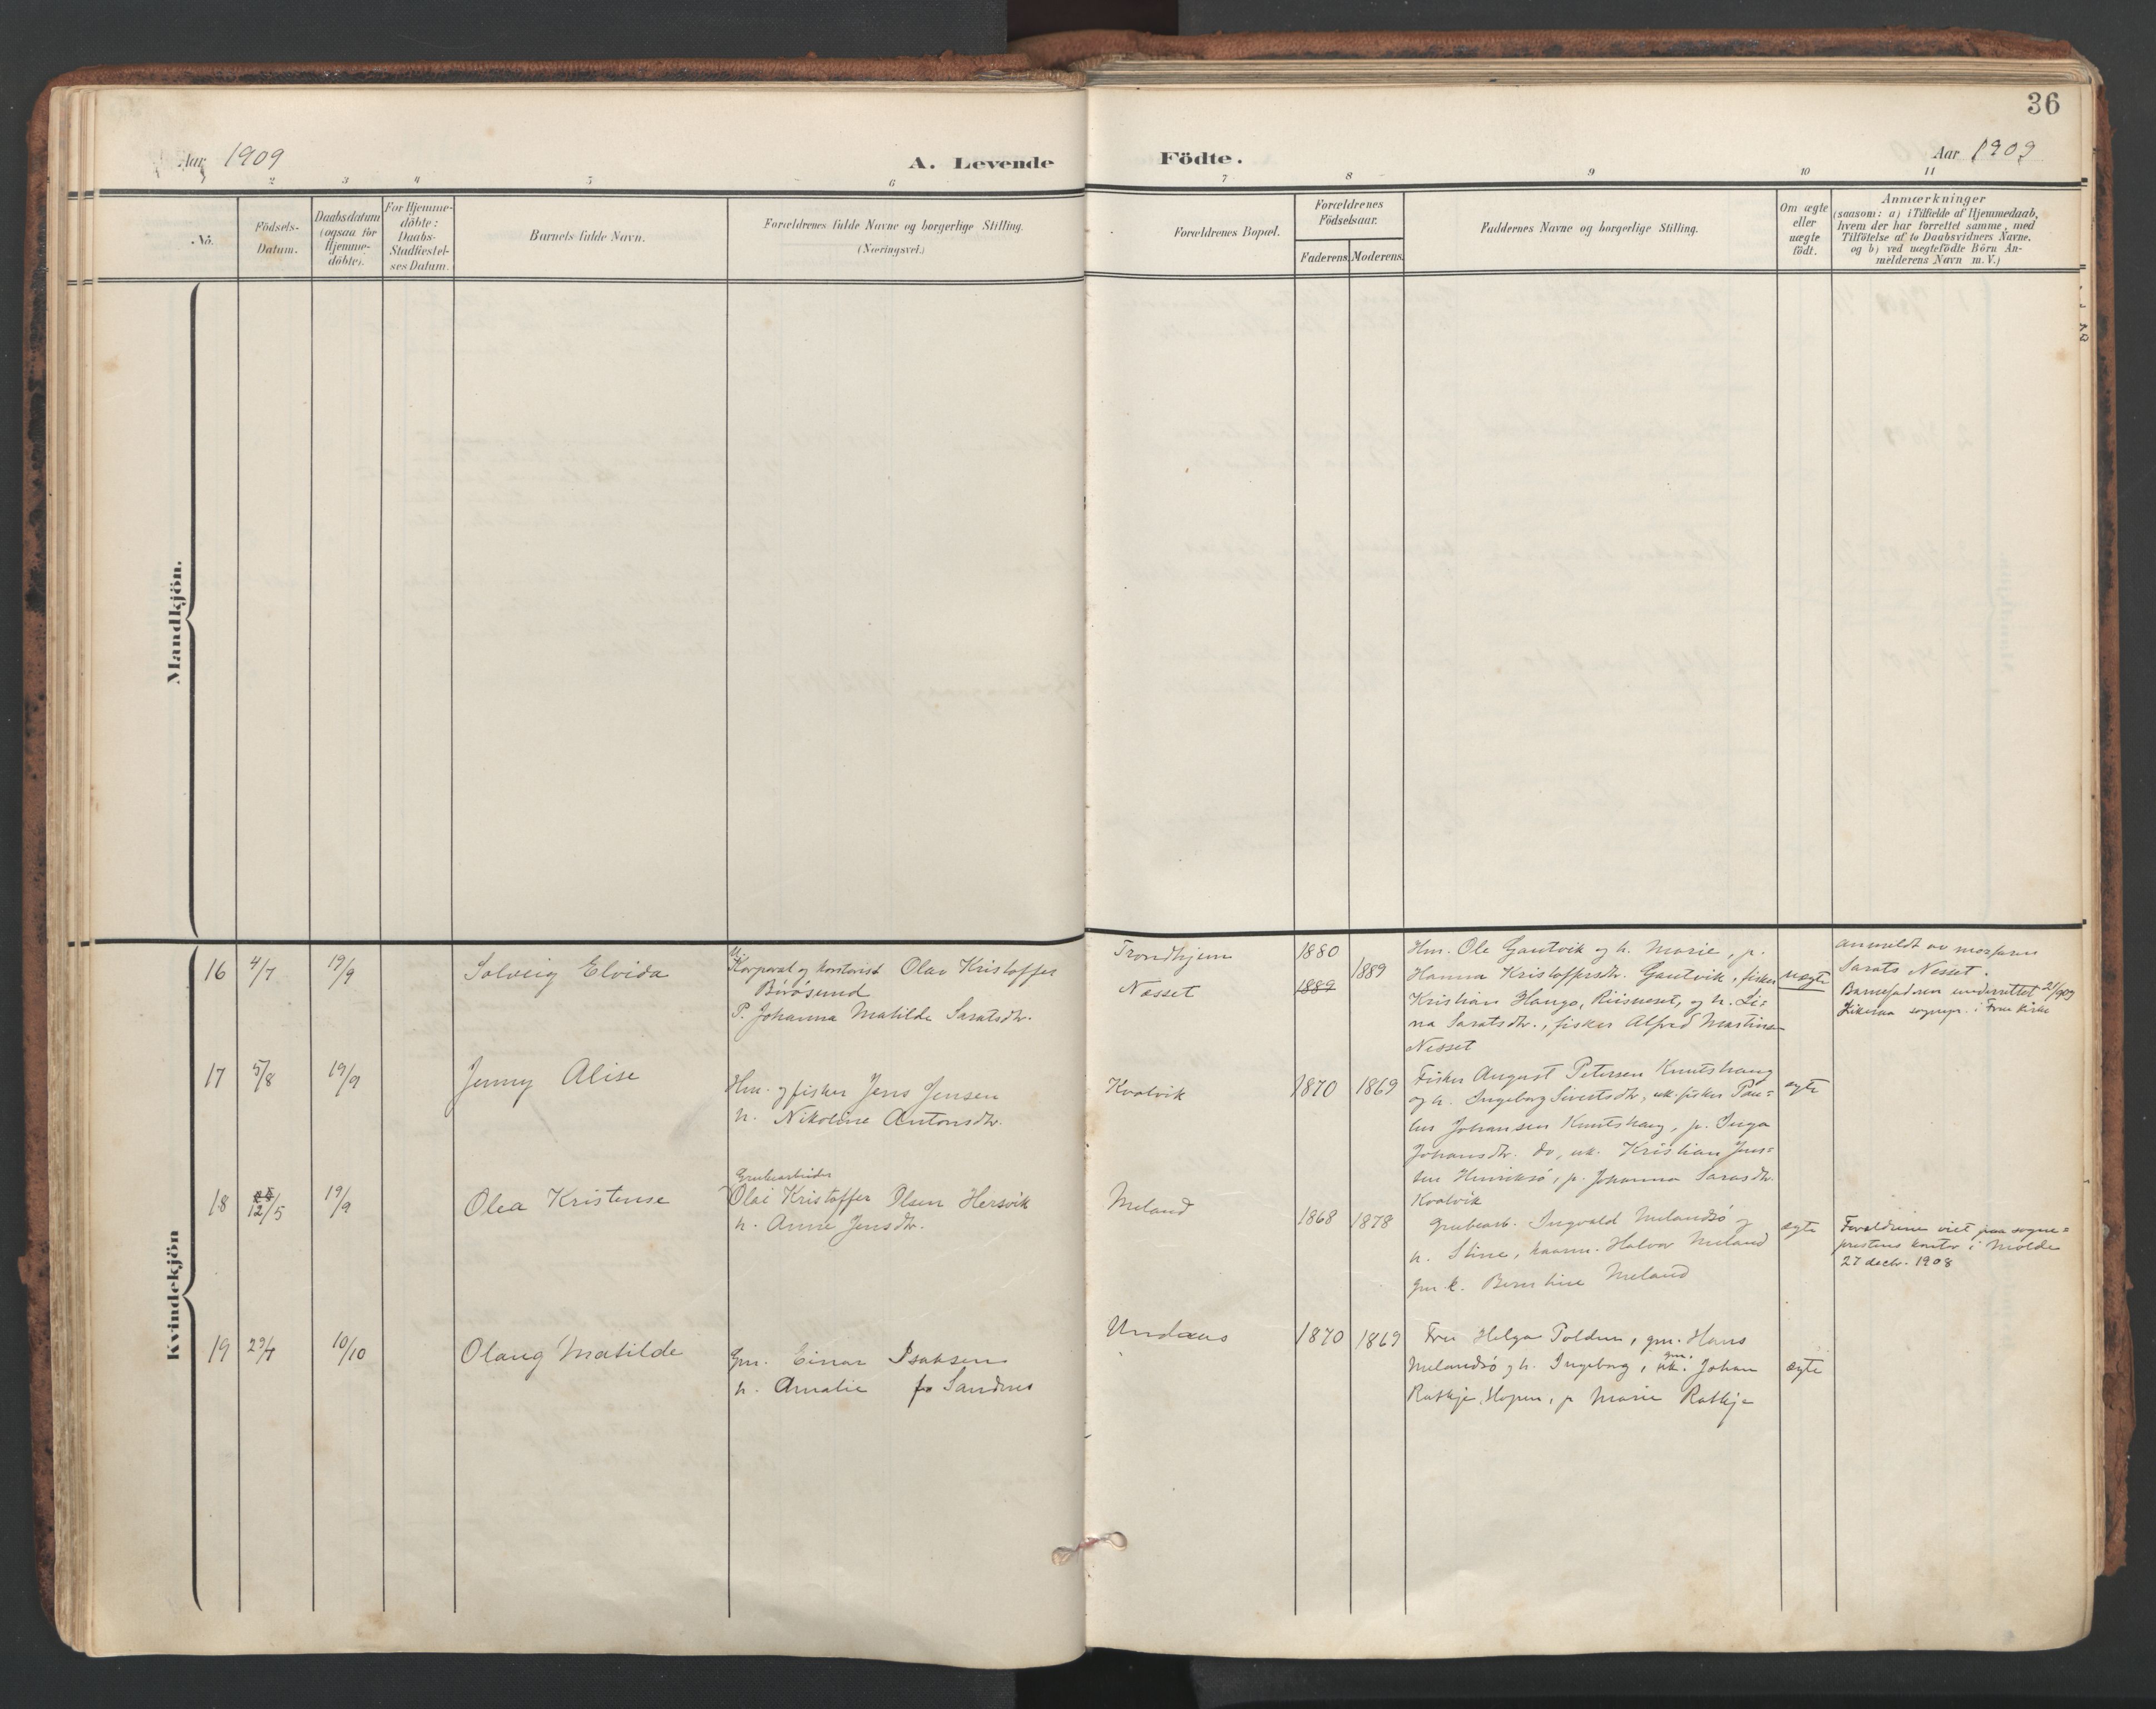 36
Aar 1909
A. Levende
Födte.
Aar 1909
1 2 3 4 5 6 7 8 9 10 11
No.
Födsels-
Datum.
Daabsdatum
(ogsaa for
Hjemme-
döbte).
For Hjemme-
döbte:
Daabs-
Stadfæstel-
ses Datum.
Barnets fulde Navn.
Forældrenes fulde Navne og borgerlige Stilling.
(Næringsvei.)
Forældrenes Bopæl.
Forældrenes
Födselsaar.
Faderens. Moderens.
Faddernes Navne og borgerlige Stilling.
Om ægte
eller
uægte
födt.
Anmærkninger
(saasom: a) i Tilfælde af Hjemmedaab,
hvem der har forrettet samme, med
Tilföielse af to Daabsvidners Navne,
og b) ved uægtefödte Börn An-
melderens Navn m. V.)
Mandkjön.
Kvindekjön
16
4/7
19/9
Solveig Elvida
Korporal og kontorist Olav Kristoffer
Börösund
P. Johanna Matilde Saratsdtr.
Trondhjem
Nesset
1880
1889
1889
Hm. Ole Gautvik og h. Marie, p.
Hanna Kristoffersdtr. Gautvik, fisker
Kristian Haugo, Riisneset, og h. Li=
na Saratsdtr., fisker Alfred Martins
Nesset
uægte
anmeldt av morfaren
Sarats Nesset.
Barnefaderen underrettet 21/9 09
sognepr. i Frue kirke
17
5/8
19/9
Jenny Alise
Hm. og fisker Jens Jensen
h. Nikoline Antonsdtr.
Kvalvik
1870
1869
Fisker August Petersen Knutshaug
og h. Ingeborg Sivertsdtr, uk. fisker Pau=
lus Johansen Knutshaug, p. Inga
Johansdtr. do, uk. Kristian Jens=
sen Henriksö, p. Johanna Sarasdtr.
Kvalvik
ægte
18
12/5
19/9
Olea Kristense
Grubearbeider
Olai Kristoffer Olsen Hersvik
h. Anne Jensdtr.
Meland
1868
1878
Grubearb. Ingvald Melandsö og
h. Stine, kaarm. Halvor Meland
gm k. Berntine Meland
ægte
Forældrene viet paa sogne=
prestens kontor i Molde
27 decbr. 1908
19
29/7
10/10
Olaug Matilde
Gm. Einar Isaksen
h. Amalie fr Sandnes
Undaas
1870
1869
Fru Helga Poldun, gm. Hans
Melandsö og h. Ingeborg, gm. Johan
Ratkje, Hopen, p Marie Ratkje
ægte